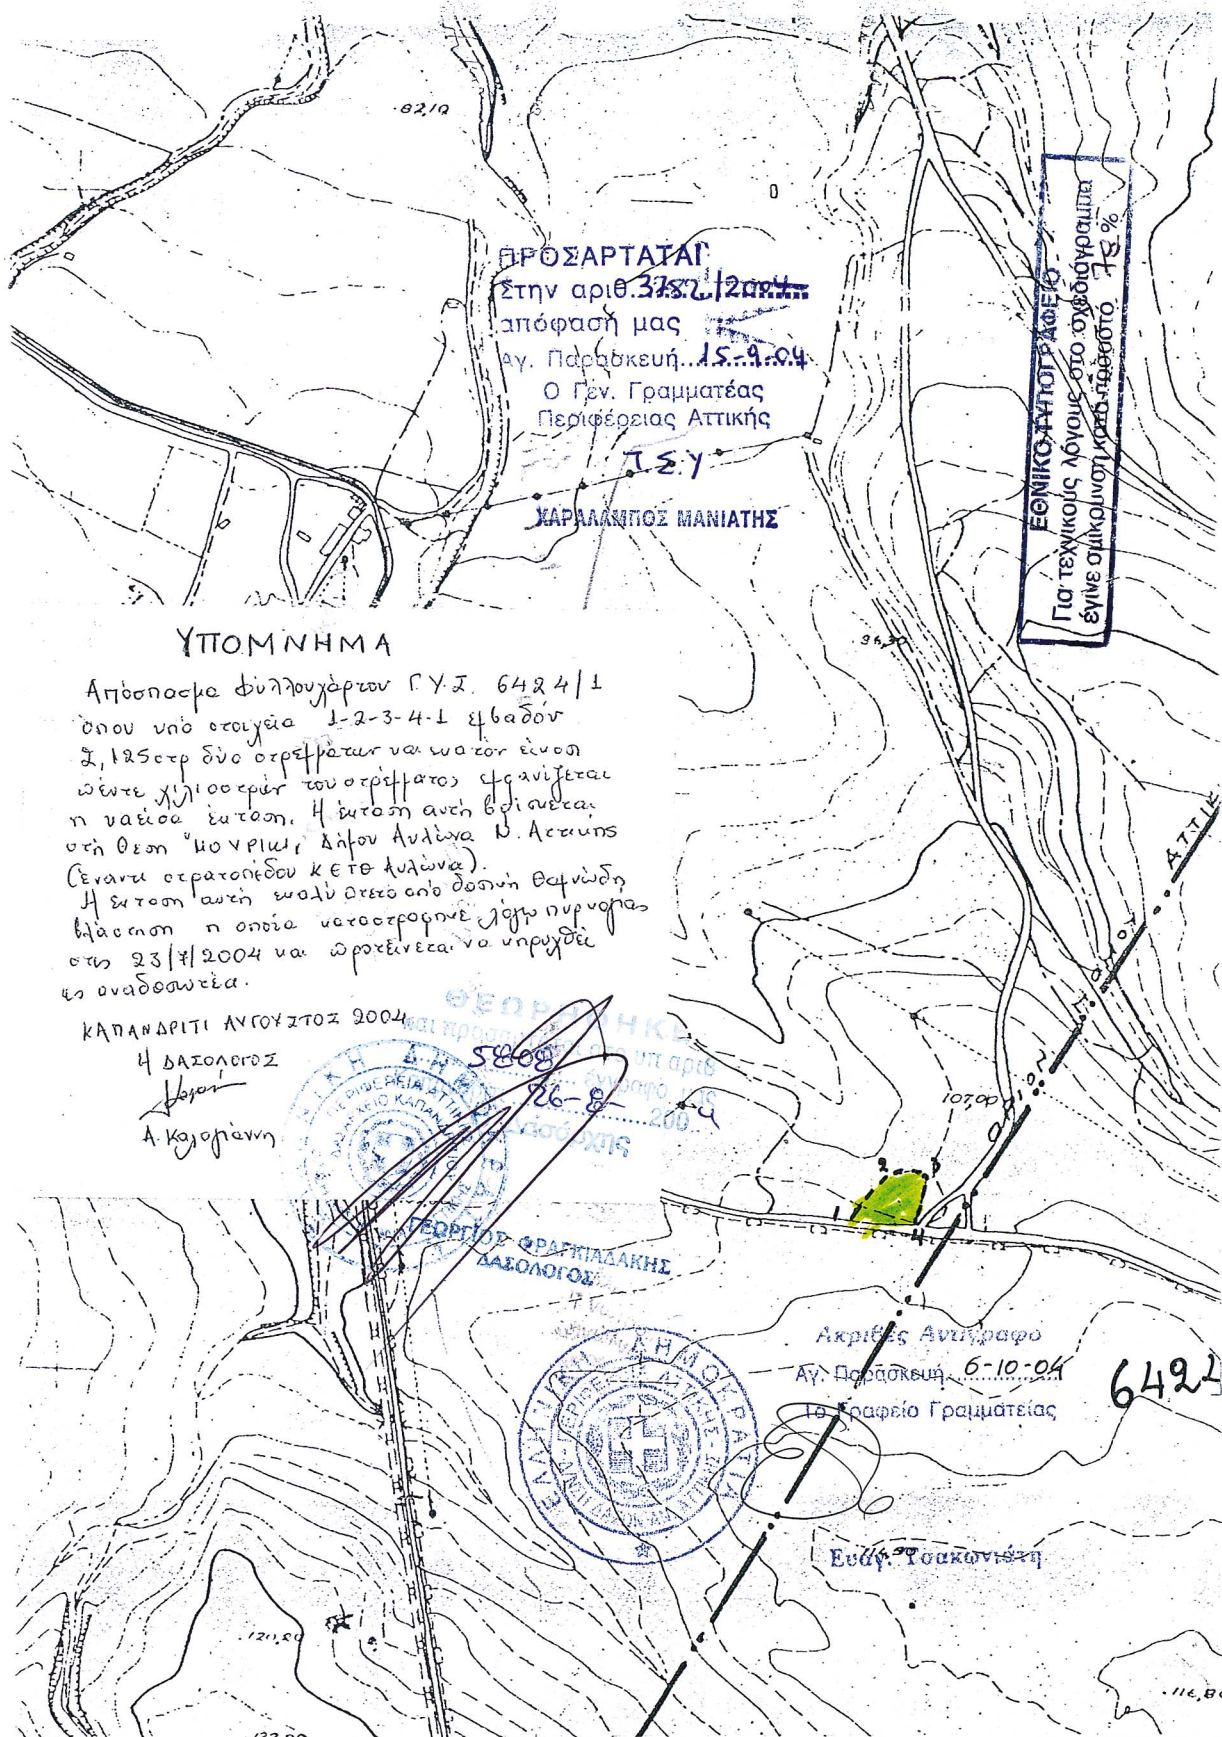 .82,10
ΠΡΟΣΑΡΤΑΤΑΙ
Στην αριθ. 3752/2004
απόφασή μας
Αγ. Παρασκευή 15-9-04
Ο Γεν. Γραμματέας
Περιφέρειας Αττικής
Τ Σ Υ
ΧΑΡΑΛΑΜΠΟΣ ΜΑΝΙΑΤΗΣ
ΕΘΝΙΚΟ ΤΥΠΟΓΡΑΦΕΙΟ
Για τεχνικούς λόγους στο σχεδιάγραμμα
έγινε σμίκρυνση κατά ποσοστό 78%
ΥΠΟΜΝΗΜΑ
Απόσπασμα φυλλουχάρτου Γ.Υ.Σ. 6424/1
όπου υπό στοιχεία 1-2-3-4-1 εμβαδόν
2,125 στρ δύο στρεμμάτων και εκατόν είκοσι
πέντε χιλιοστών του στρέμματος εμφανίζεται
η καείσα έκταση. Η έκταση αυτή βρίσκεται
στη θέση Δήμου Αυλώνα Ν. Αττικής
(έναντι στρατοπέδου ΚΕΤΘ Αυλώνα).
Η έκταση αυτή εκαλύπτετο από δασική θαμνώδη
βλάστηση η οποία καταστράφηκε λόγω πυρκαγιάς
στις 23/7/2004 και προτείνεται να κηρυχθεί
ως αναδασωτέα.
ΚΑΠΑΝΔΡΙΤΙ ΑΥΓΟΥΣΤΟΣ 2004
Η ΔΑΣΟΛΟΓΟΣ
Α. Καλογιάννη
ΘΕΩΡΗΘΗΚΕ
υπ αριθ
5808
26-8- 200 4
ΓΕΩΡΓΙΟΣ ΦΡΑΓΚΙΑΔΑΚΗΣ
ΔΑΣΟΛΟΓΟΣ
94,30
ΑΤΤΙΚ
107,00
1 2 3 4
ΕΛΛΗΝΙΚΗ ΔΗΜΟΚΡΑΤΙΑ
Ακριβές Αντίγραφο
Αγ. Παρασκευή 6-10-04
Το Γραφείο Γραμματείας
Ευαγ. Τσακωνιάτη
6424
.120,20
.116,80